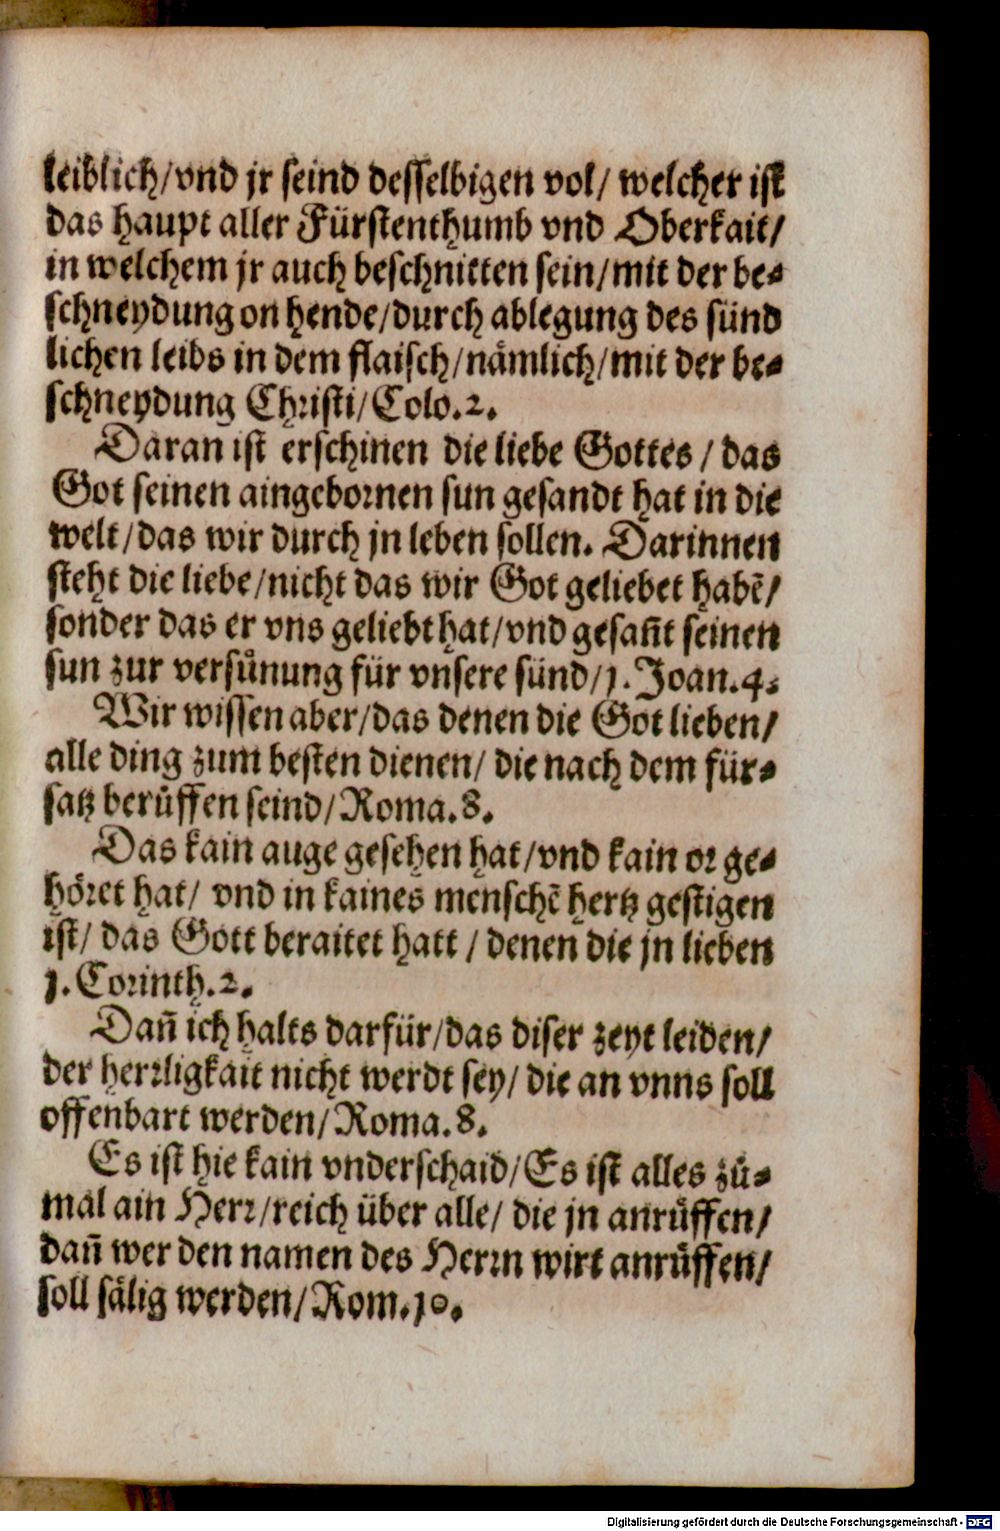 leiblich/vnd jr seind desselbigen vol/ welcher ist
das haupt aller Fürstenthumb vnd Oberkait/
in welchem jr auch beschnitten sein/mit der be⸗
schneydung on hende/durch ablegung des sünd
lichen leibs in dem flaisch/nåmlich/mit der be⸗
schneydung Christi/Colo.2.
Daran ist erschinen die liebe Gottes / das
Got seinen aingebornen sun gesandt hat in die
welt/das wir durch jn leben sollen. Darinnen
steht die liebe/nicht das wir Got geliebet habē/
sonder das er vns geliebt hat/vnd gesañt seinen
sun zur versůnung für vnsere sünd/1.Joan.4.
Wir wissen aber/das denen die Got lieben/
alle ding zum besten dienen/ die nach dem für⸗
satz berůffen seind/Roma.8.
Das kain auge gesehen hat/vnd kain or ge⸗
höret hat/ vnd in kaines menschē hertz gestigen
ist/ das Gott beraitet hatt / denen die jn lieben
1.Corinth.2.
Dañ ich halts darfür/das diser zeyt leiden/
der herrligkait nicht werdt sey/ die an vnns soll
offenbart werden/Roma.8.
Es ist hie kain vnderschaid/Es ist alles zů⸗
mal ain Herr/reich über alle/ die jn anrůffen/
dañ wer den namen des Herrn wirt anrůffen/
soll sålig werden/Rom.10.
Digitalisierung gefördert durch die Deutsche Forschungsgemeinschaft - DFG